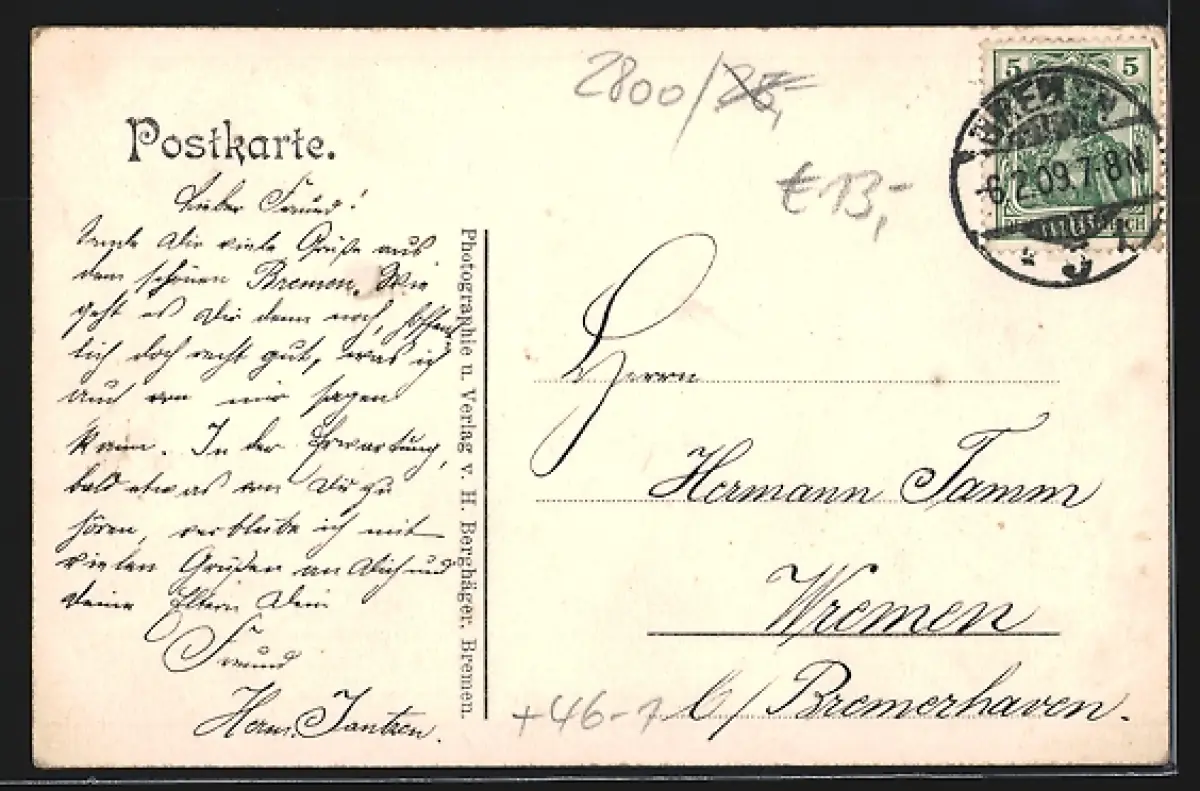 Postkarte.
Lieber Freund!
Sende Dir viele Grüße aus
dem schönen Bremen. Wie
geht es Dir denn noch, hoffent-
lich doch recht gut, was ich
auch von mir sagen
kann. In der Erwartung,
bald etwas von Dir zu
hören, verbleibe ich mit
vielen Grüßen an Dich und
Deine Eltern Dein
Freund
Herm. Jantzen.
Photographie u. Verlag v. H. Berghäger, Bremen.
2800/28,-
€ 13,-
5 5
BREMEN
6.2.09.7-8N
Herrn
Hermann Tamm
Wremen
b/Bremerhaven.
+46-1